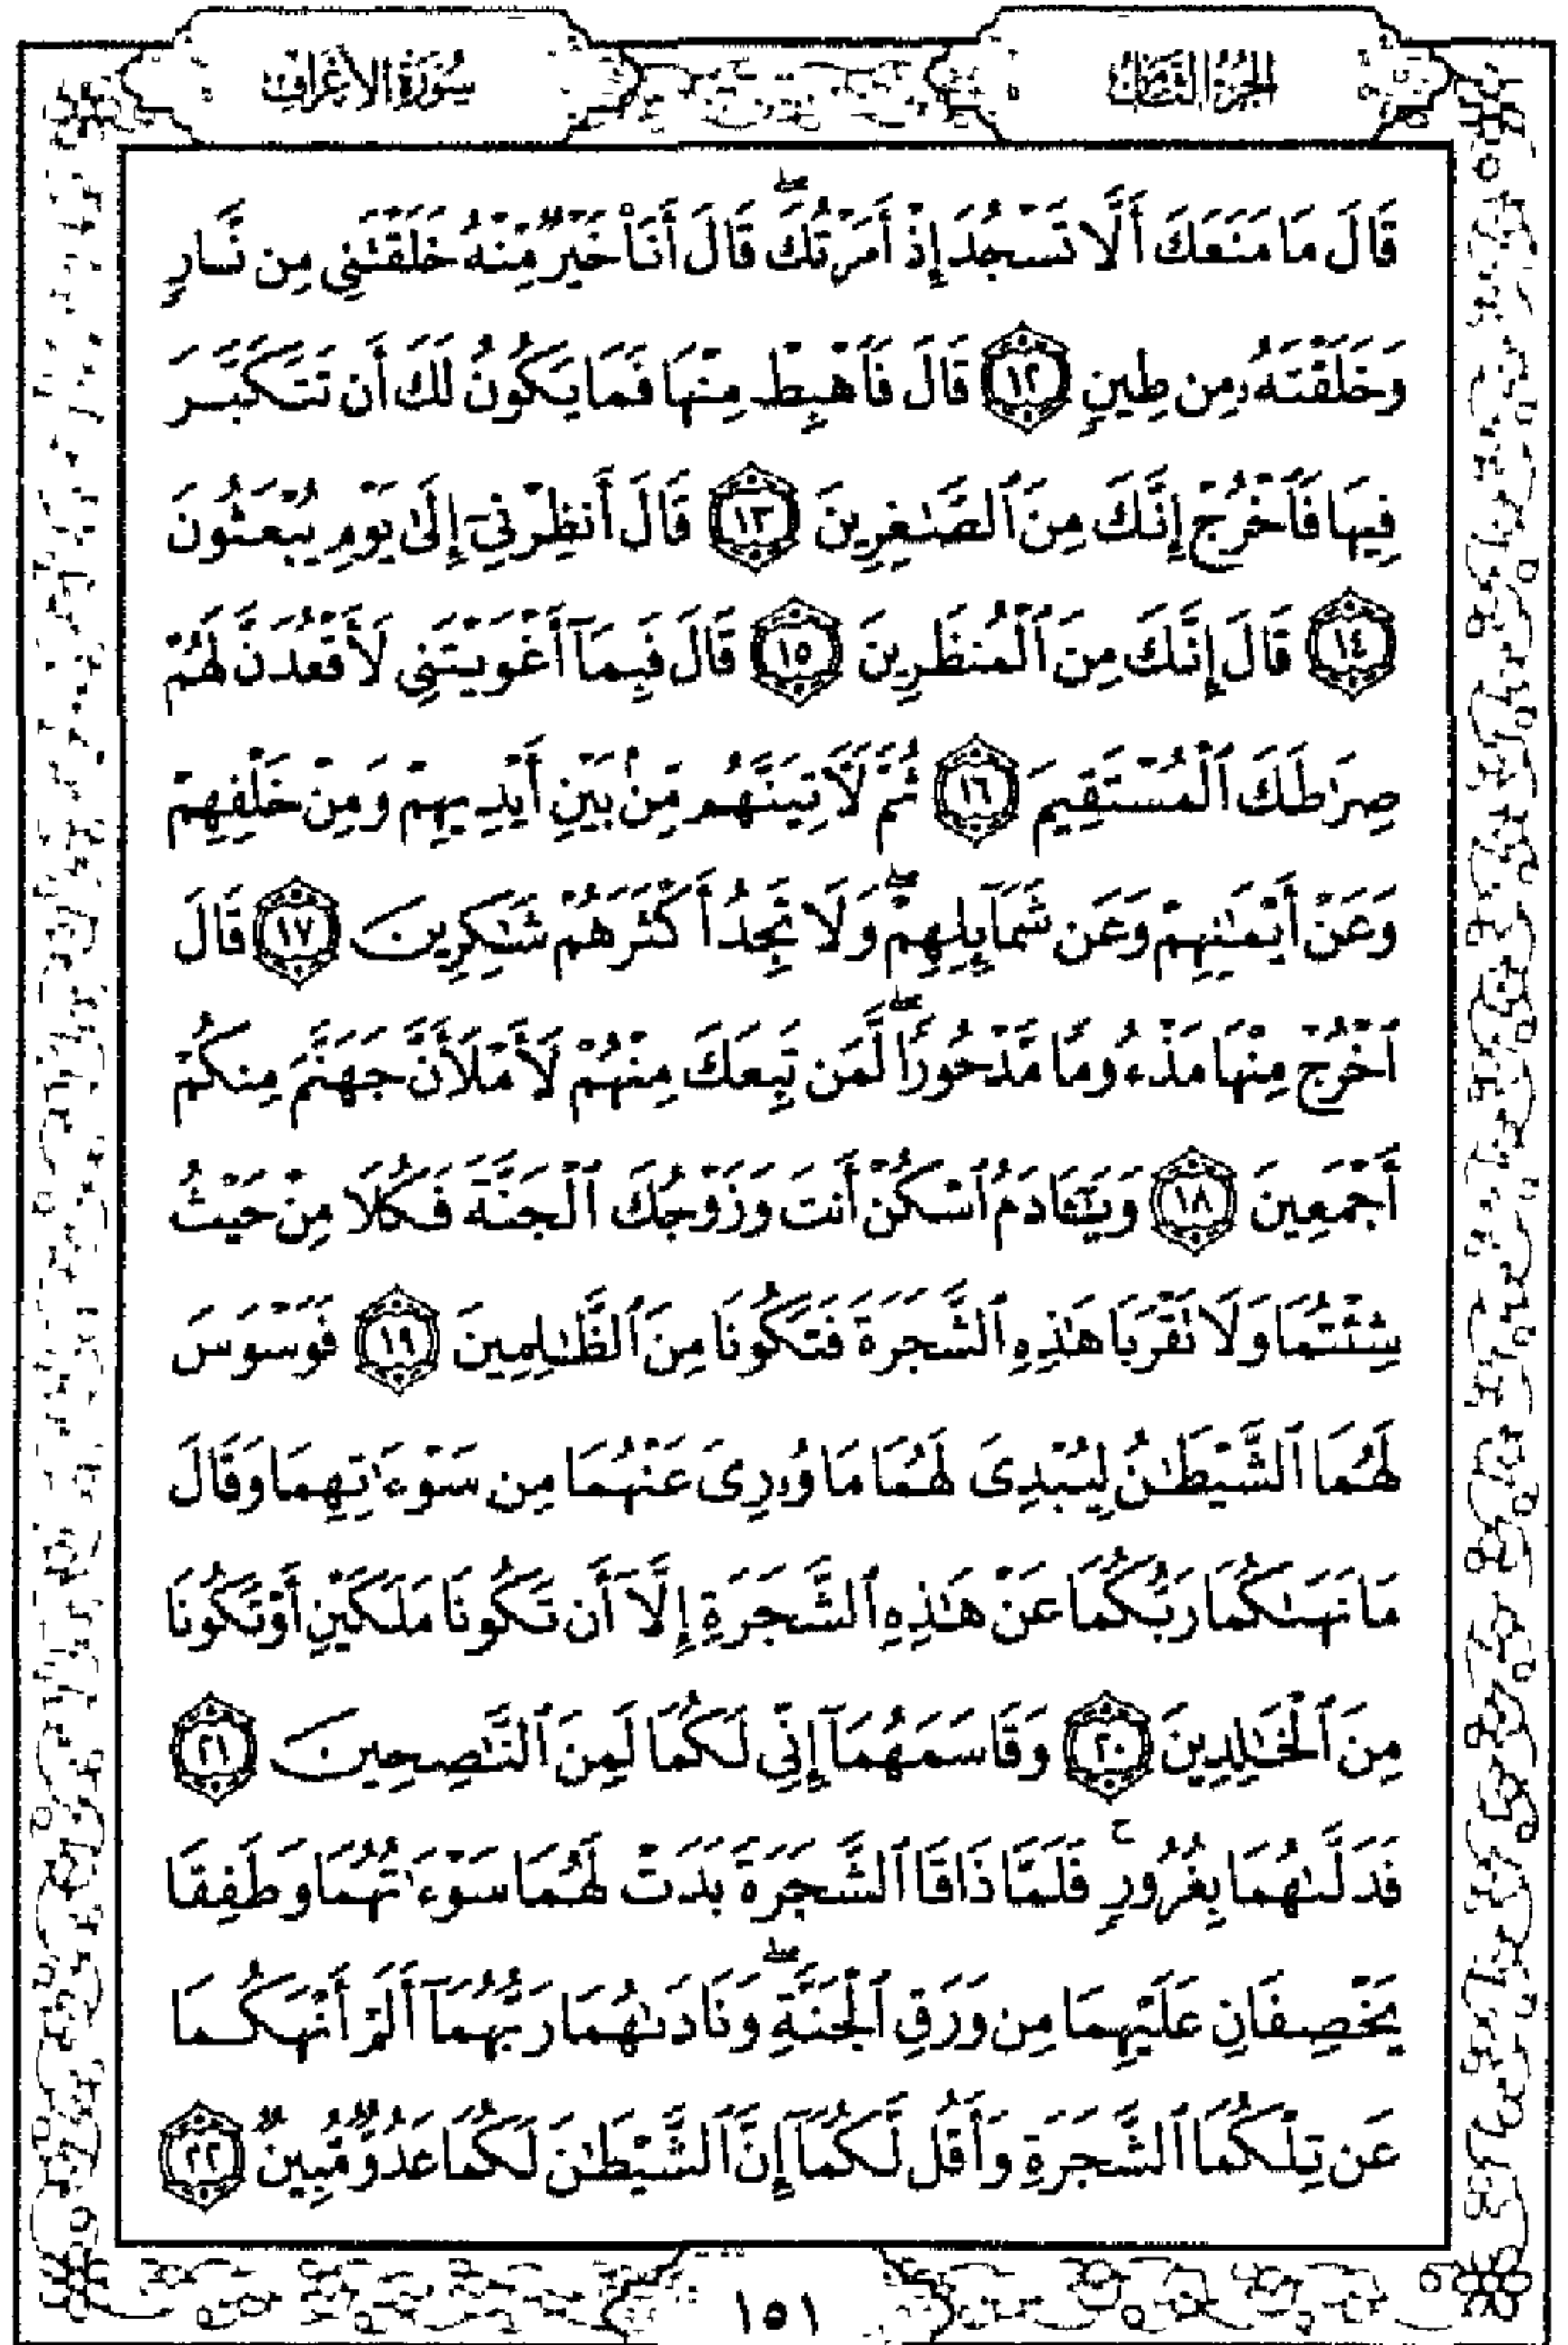 الجزء الثامن
سورة الأعراف
قَالَ مَا مَنَعَكَ أَلَّا تَسْجُدَ إِذْ أَمَرْتُكَ ۖ قَالَ أَنَا۠ خَيْرٌ مِّنْهُ خَلَقْتَنِى مِن نَّارٍ
وَخَلَقْتَهُۥ مِن طِينٍ ١٢ قَالَ فَٱهْبِطْ مِنْهَا فَمَا يَكُونُ لَكَ أَن تَتَكَبَّرَ
فِيهَا فَٱخْرُجْ إِنَّكَ مِنَ ٱلصَّٰغِرِينَ ١٣ قَالَ أَنظِرْنِىٓ إِلَىٰ يَوْمِ يُبْعَثُونَ
١٤ قَالَ إِنَّكَ مِنَ ٱلْمُنظَرِينَ ١٥ قَالَ فَبِمَآ أَغْوَيْتَنِى لَأَقْعُدَنَّ لَهُمْ
صِرَٰطَكَ ٱلْمُسْتَقِيمَ ١٦ ثُمَّ لَـَٔاتِيَنَّهُم مِّنۢ بَيْنِ أَيْدِيهِمْ وَمِنْ خَلْفِهِمْ
وَعَنْ أَيْمَٰنِهِمْ وَعَن شَمَآئِلِهِمْ ۖ وَلَا تَجِدُ أَكْثَرَهُمْ شَٰكِرِينَ ١٧ قَالَ
ٱخْرُجْ مِنْهَا مَذْءُومًا مَّدْحُورًا ۖ لَّمَن تَبِعَكَ مِنْهُمْ لَأَمْلَأَنَّ جَهَنَّمَ مِنكُمْ
أَجْمَعِينَ ١٨ وَيَٰٓـَٔادَمُ ٱسْكُنْ أَنتَ وَزَوْجُكَ ٱلْجَنَّةَ فَكُلَا مِنْ حَيْثُ
شِئْتُمَا وَلَا تَقْرَبَا هَٰذِهِ ٱلشَّجَرَةَ فَتَكُونَا مِنَ ٱلظَّٰلِمِينَ ١٩ فَوَسْوَسَ
لَهُمَا ٱلشَّيْطَٰنُ لِيُبْدِىَ لَهُمَا مَا وُۥرِىَ عَنْهُمَا مِن سَوْءَٰتِهِمَا وَقَالَ
مَا نَهَىٰكُمَا رَبُّكُمَا عَنْ هَٰذِهِ ٱلشَّجَرَةِ إِلَّآ أَن تَكُونَا مَلَكَيْنِ أَوْ تَكُونَا
مِنَ ٱلْخَٰلِدِينَ ٢٠ وَقَاسَمَهُمَآ إِنِّى لَكُمَا لَمِنَ ٱلنَّٰصِحِينَ ٢١
فَدَلَّىٰهُمَا بِغُرُورٍ ۚ فَلَمَّا ذَاقَا ٱلشَّجَرَةَ بَدَتْ لَهُمَا سَوْءَٰتُهُمَا وَطَفِقَا
يَخْصِفَانِ عَلَيْهِمَا مِن وَرَقِ ٱلْجَنَّةِ ۖ وَنَادَىٰهُمَا رَبُّهُمَآ أَلَمْ أَنْهَكُمَا
عَن تِلْكُمَا ٱلشَّجَرَةِ وَأَقُل لَّكُمَآ إِنَّ ٱلشَّيْطَٰنَ لَكُمَا عَدُوٌّ مُّبِينٌ ٢٢
١٥١